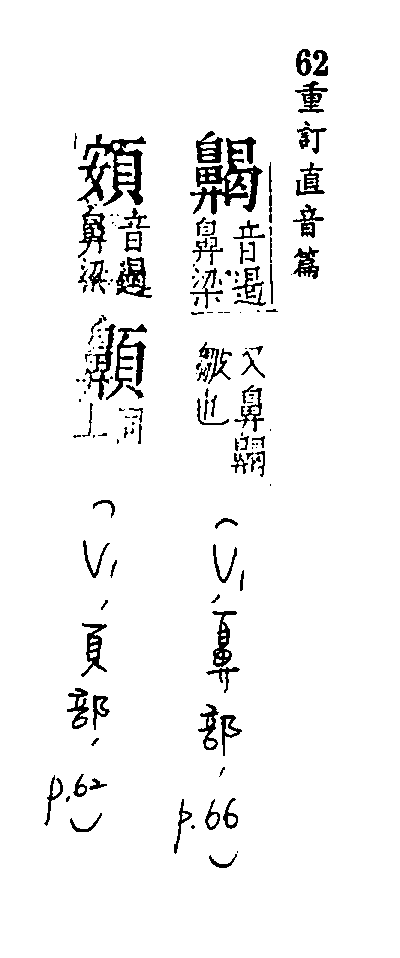 62重訂直音篇
齃
音遏
鼻梁
又鼻齃
皺也
(V1,鼻部,p.66)
頞
音遏
鼻梁
同
上
(V1,頁部,p.62)